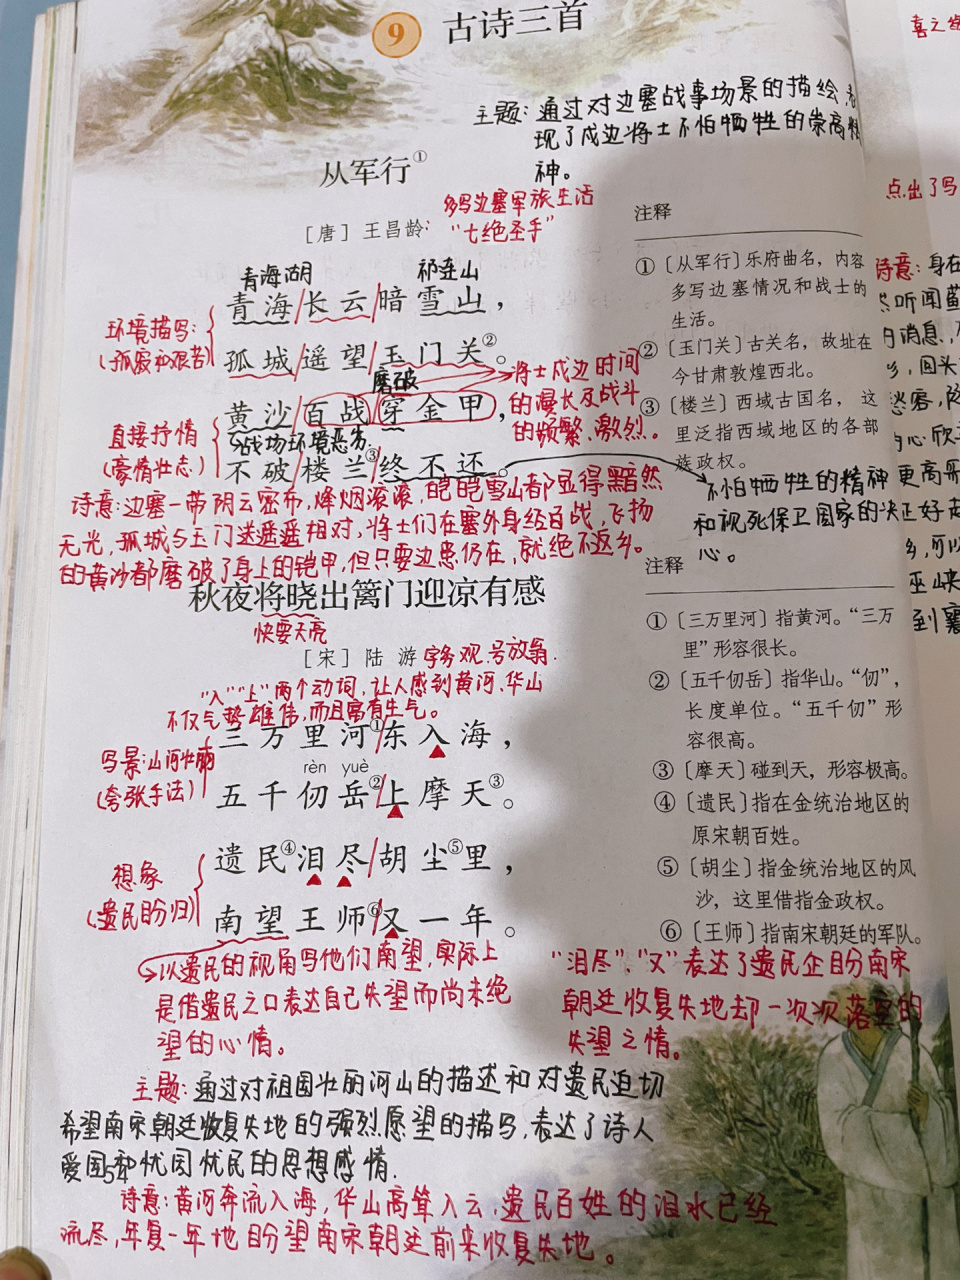 9 古诗三首
主题:通过对边塞战事场景的描绘,表
现了戍边将士不怕牺牲的崇高精
神。
从军行①
多写边塞军旅生活
[唐] 王昌龄:"七绝圣手"
青海湖 祁连山
青海/长云/暗雪山,
环境描写:
(孤寂和艰苦)
孤城/遥望/玉门关②。
磨破
黄沙/百战/穿金甲,
将士戍边时间
的漫长及战斗
的频繁、激烈。
直接抒情
(豪情壮志)
战场环境恶劣
不破楼兰③终不还。
不怕牺牲的精神
和视死保卫国家的决
心。
诗意:边塞一带阴云密布,烽烟滚滚,皑皑雪山都显得黯然
无光,孤城与玉门关遥遥相对,将士们在塞外身经百战,飞扬
的黄沙都磨破了身上的铠甲,但只要边患仍在,就绝不返乡。
注释
①〔从军行〕乐府曲名,内容
多写边塞情况和战士的
生活。
②〔玉门关〕古关名,故址在
今甘肃敦煌西北。
③〔楼兰〕西域古国名,这
里泛指西域地区的各部
族政权。
秋夜将晓出篱门迎凉有感
快要天亮
[宋] 陆 游 字务观,号放翁.
"入""上"两个动词,让人感到黄河、华山
不仅气势雄伟,而且富有生气。
三万里河①/东入海,
写景:山河壮丽
(夸张手法)
rèn yuè
五千仞岳②/上摩天③。
遗民④泪尽/胡尘⑤里,
想象
(遗民盼归)
南望王师⑥/又一年。
以遗民的视角写他们南望,实际上
是借遗民之口表达自己失望而尚未绝
望的心情。
"泪尽"、"又"表达了遗民企盼南宋
朝廷收复失地却一次次落空的
失望之情。
主题:通过对祖国壮丽河山的描述和对遗民迫切
希望南宋朝廷收复失地的强烈愿望的描写,表达了诗人
爱国和忧国忧民的思想感情.
诗意:黄河奔流入海,华山高耸入云,遗民百姓的泪水已经
流尽,年复一年地盼望南宋朝廷前来收复失地。
注释
①〔三万里河〕指黄河。“三万
里”形容很长。
②〔五千仞岳〕指华山。“仞”,
长度单位。“五千仞”形
容很高。
③〔摩天〕碰到天,形容极高。
④〔遗民〕指在金统治地区的
原宋朝百姓。
⑤〔胡尘〕指金统治地区的风
沙,这里借指金政权。
⑥〔王师〕指南宋朝廷的军队。
点出了
诗意:身在
听闻
消息,
回头
心欣
更高
正好
乡,可以
巫峡
到襄